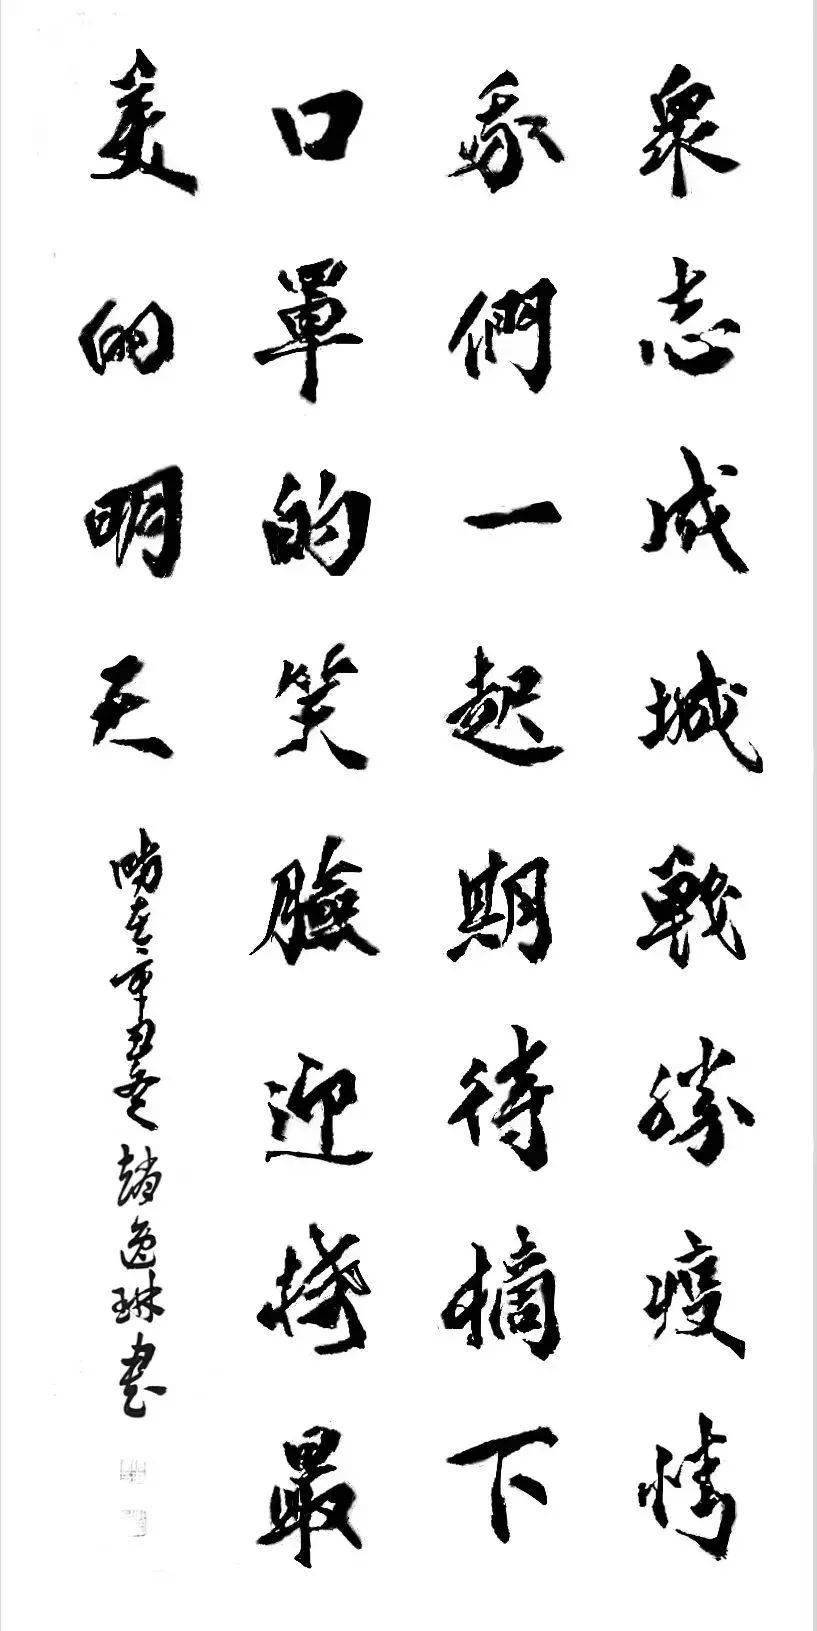 眾志成城戰勝疫情
我們一起期待摘下
口罩的笑臉迎接最
美的明天
時在辛丑 趙逸琳書